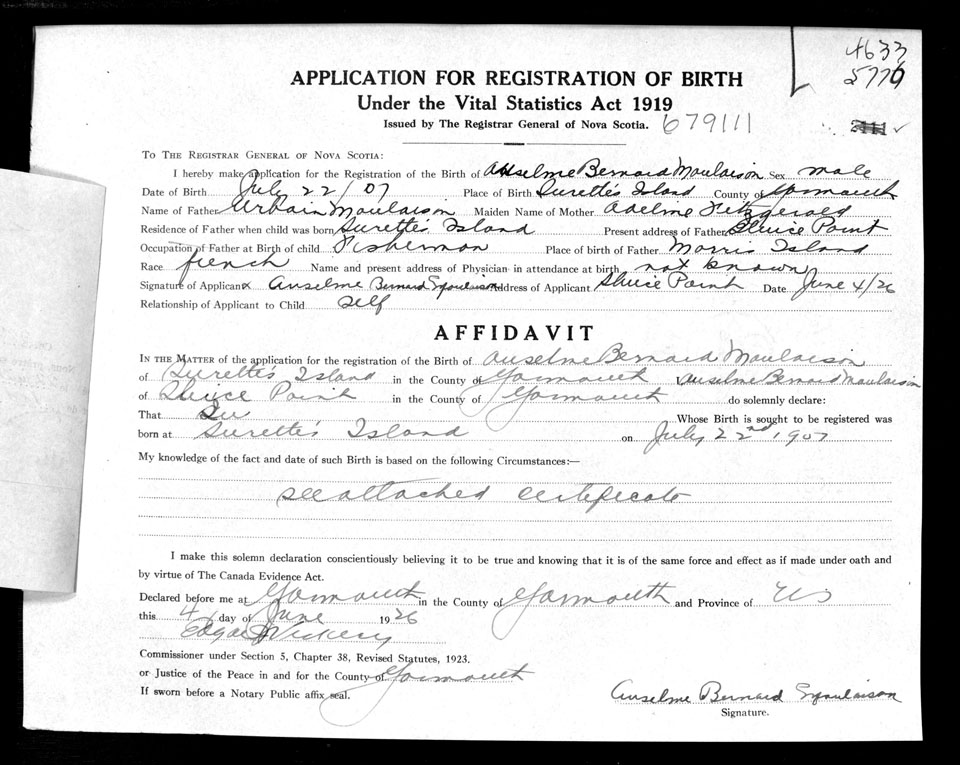 4633
5776
APPLICATION FOR REGISTRATION OF BIRTH
Under the Vital Statistics Act 1919
Issued by The Registrar General of Nova Scotia. 679111
TO THE REGISTRAR GENERAL OF NOVA SCOTIA:
I hereby make application for the Registration of the Birth of Anselme Bernard Moulaison Sex male
Date of Birth July 22/07 Place of Birth Surette's Island County of Yarmouth
Name of Father Urbain Moulaison Maiden Name of Mother Adeline Fitzgerald
Residence of Father when child was born Surette's Island Present address of Father Sluice Point
Occupation of Father at Birth of child Fisherman Place of birth of Father Morris Island
Race french Name and present address of Physician in attendance at birth not known
Signature of Applicant Anselme Bernard Moulaison Address of Applicant Sluice Point Date June 4/26
Relationship of Applicant to Child self
AFFIDAVIT
IN THE MATTER of the application for the registration of the Birth of Anselme Bernard Moulaison
of Surette's Island in the County of Yarmouth I, Anselme Bernard Moulaison
of Sluice Point in the County of Yarmouth do solemnly declare:
That Whose Birth is sought to be registered was
born at Surette's Island on July 22nd 1907
My knowledge of the fact and date of such Birth is based on the following Circumstances:—
see attached certificate
I make this solemn declaration conscientiously believing it to be true and knowing that it is of the same force and effect as if made under oath and
by virtue of The Canada Evidence Act.
Declared before me at Yarmouth in the County of Yarmouth and Province of NS
this 4 day of June 1926
Edgar J Vickery
Commissioner under Section 5, Chapter 38, Revised Statutes, 1923.
or Justice of the Peace in and for the County of Yarmouth
If sworn before a Notary Public affix seal.
Anselme Bernard Moulaison
Signature.